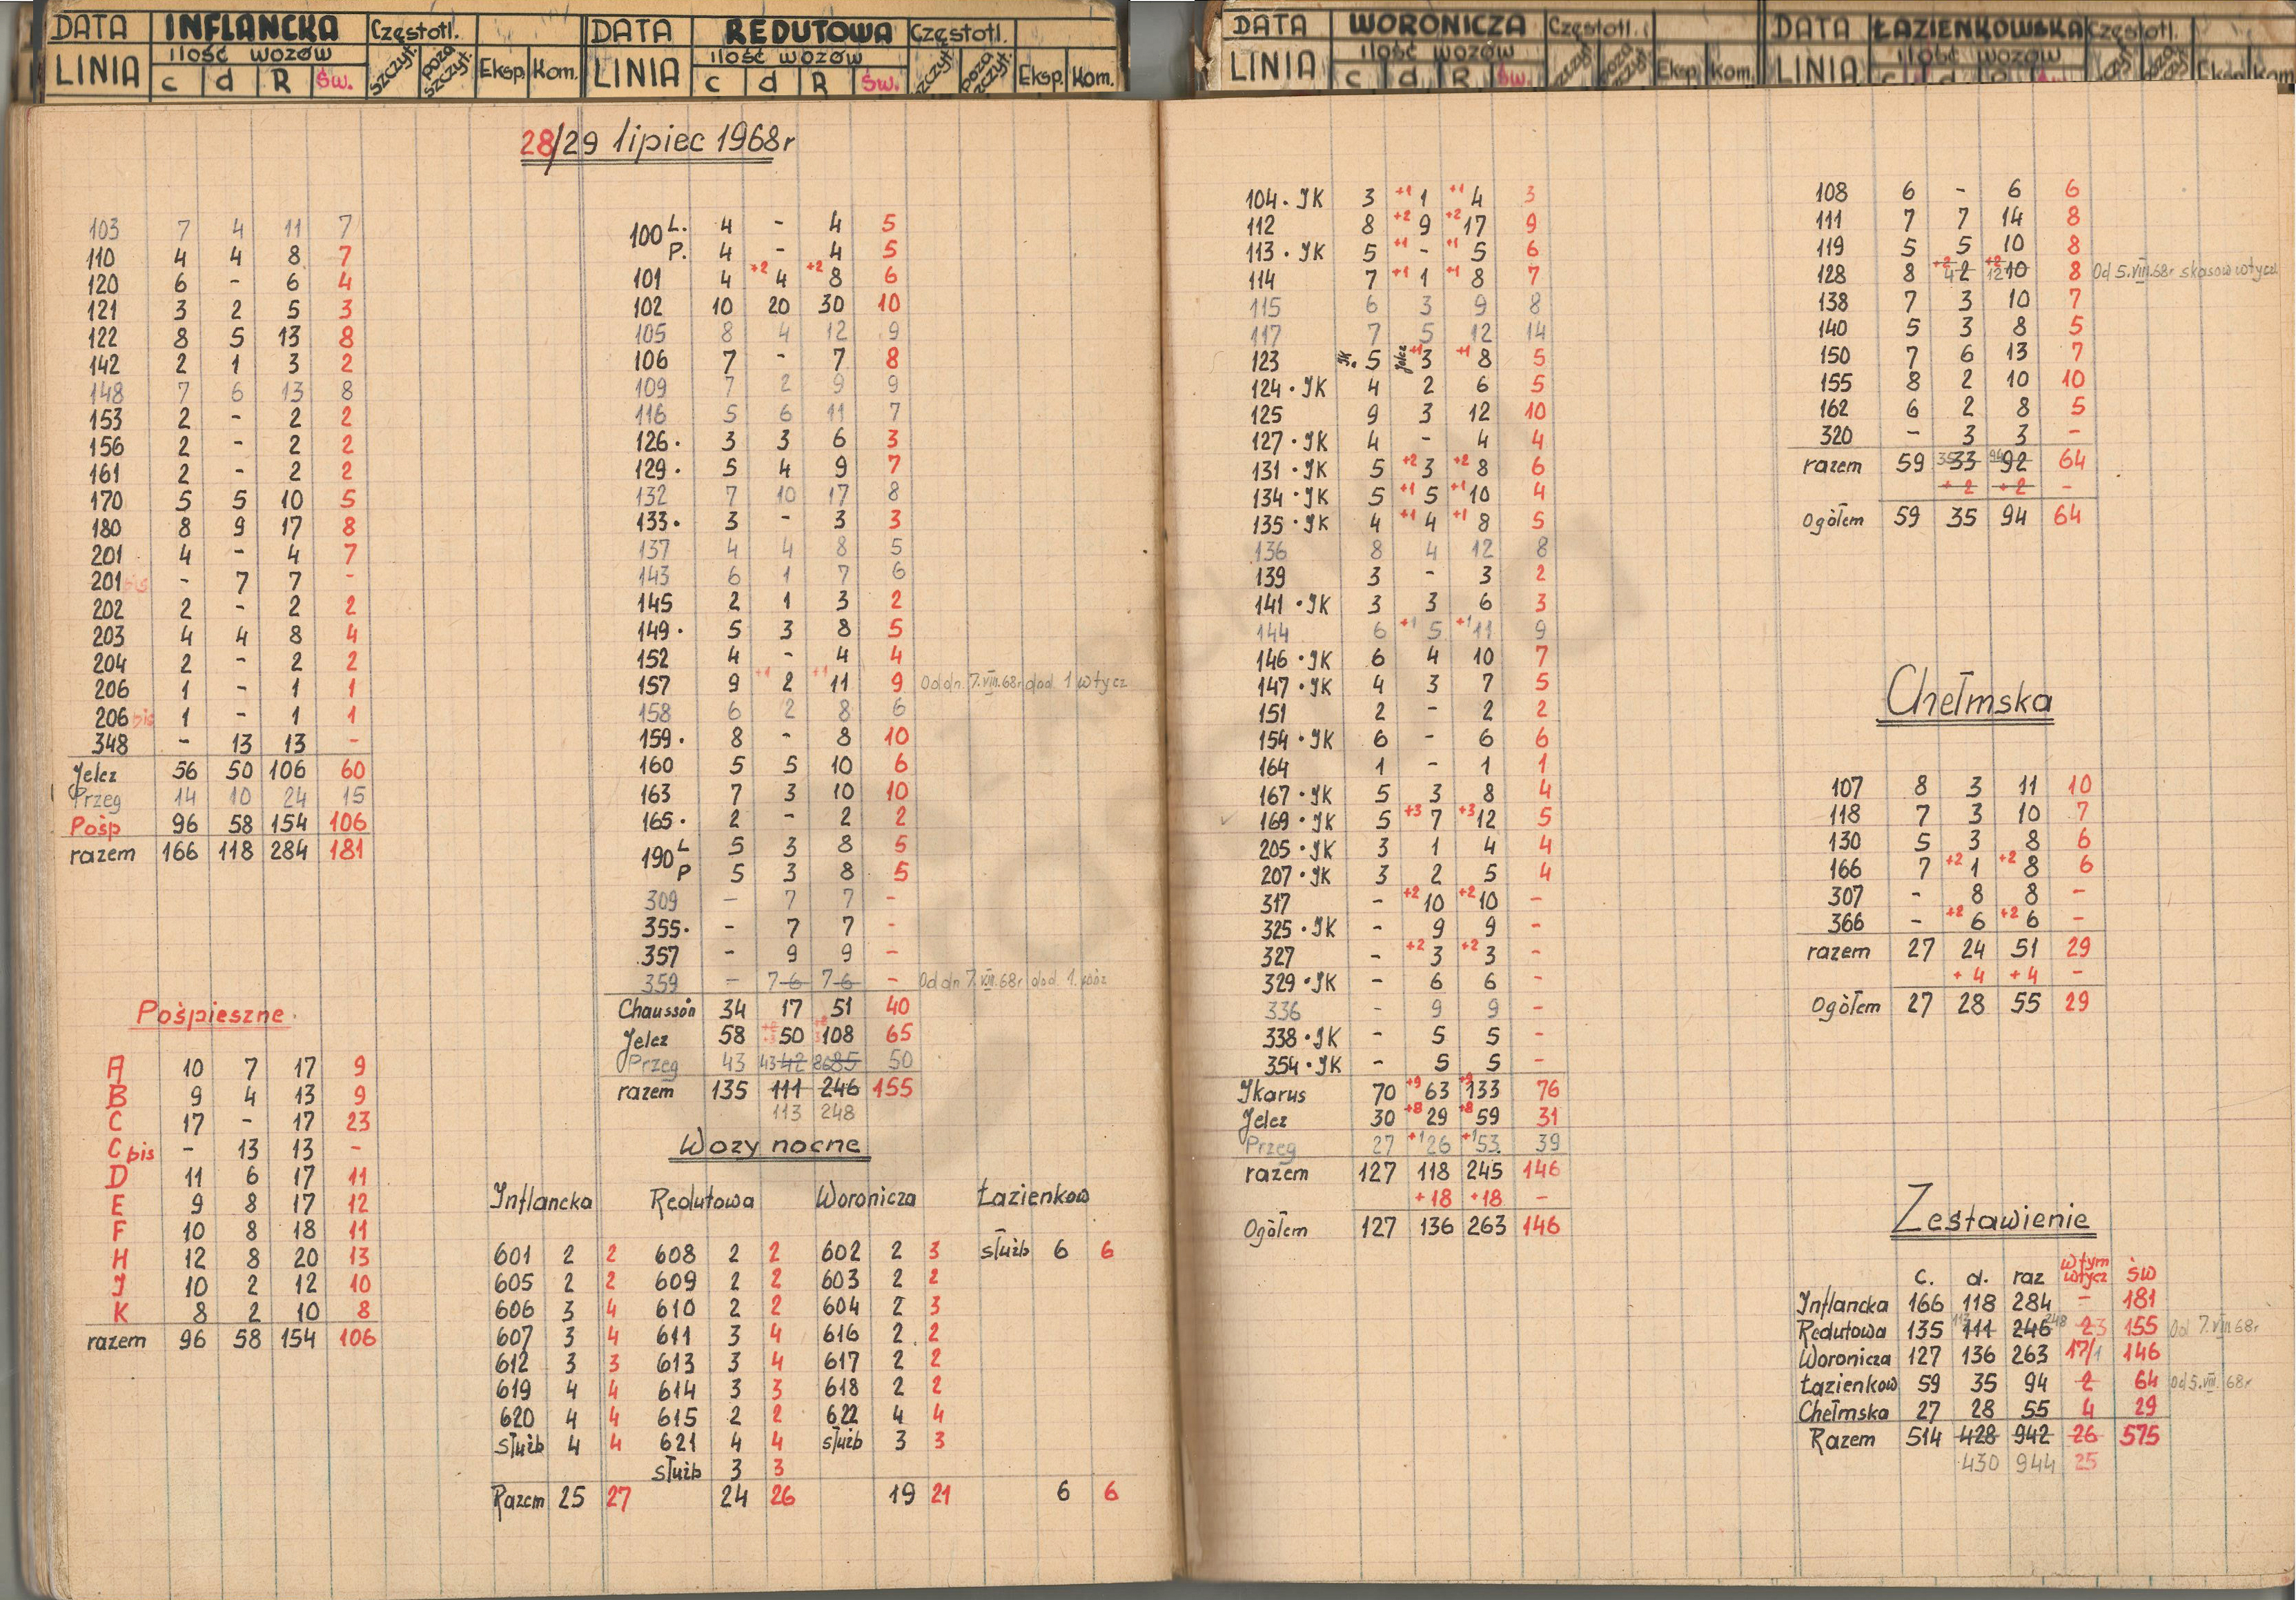 DATA INFLANCKA Częstotl.
LINIA ilość wozów szczyt. poza szczyt. Eksp. Kom.
c d R Św.
DATA REDUTOWA Częstotl.
LINIA ilość wozów szczyt. poza szczyt. Eksp. Kom.
c d R Św.
DATA WORONICZA Częstotl.
LINIA ilość wozów szczyt poza szczyt. Eksp. Kom.
c d R Św.
DATA ŁAZIENKOWSKA Częstotl.
LINIA ilość wozów
28/29 lipiec 1968r
103 7 4 11 7
110 4 4 8 7
120 6 - 6 4
121 3 2 5 3
122 8 5 13 8
142 2 1 3 2
148 7 6 13 8
153 2 - 2 2
156 2 - 2 2
161 2 - 2 2
170 5 5 10 5
180 8 9 17 8
201 4 - 4 7
201 bis - 7 7 -
202 2 - 2 2
203 4 4 8 4
204 2 - 2 2
206 1 - 1 1
206 bis 1 - 1 1
348 - 13 13 -
Jelcz 56 50 106 60
Przeg 14 10 24 15
Pośp 96 58 154 106
razem 166 118 284 181
Pośpieszne
A 10 7 17 9
B 9 4 13 9
C 17 - 17 23
C bis - 13 13 -
D 11 6 17 11
E 9 8 17 12
F 10 8 18 11
H 12 8 20 13
J 10 2 12 10
K 8 2 10 8
razem 96 58 154 106
100 L. 4 - 4 5
P. 4 - 4 5
101 4 +2 4 +2 8 6
102 10 20 30 10
105 8 4 12 9
106 7 - 7 8
109 7 2 9 9
116 5 6 11 7
126. 3 3 6 3
129. 5 4 9 7
132 7 10 17 8
133. 3 - 3 3
137 4 4 8 5
143 6 1 7 6
145 2 1 3 2
149. 5 3 8 5
152 4 - 4 4
157 9 +1 2 +1 11 9 Od dn. 7.VIII.68r dod. 1 wtycz
158 6 2 8 6
159. 8 - 8 10
160 5 5 10 6
163 7 3 10 10
165. 2 - 2 2
190 L 5 3 8 5
P 5 3 8 5
309 - 7 7 -
355. - 7 7 -
357 - 9 9 -
359 - 7 6 7 6 - Od dn 7.VIII.68r dod. 1.
Chausson 34 17 51 40
Jelcz 58 50 108 65
Przeg 43 43 42 86 85 50
razem 135 111 246 155
113 248
Wozy nocne
Inflancka Redutowa Woronicza Łazienkow
601 2 2 608 2 2 602 2 3 służb 6 6
605 2 2 609 2 2 603 2 2
606 3 4 610 2 2 604 2 3
607 3 4 611 3 4 616 2 2
612 3 3 613 3 4 617 2 2
619 4 4 614 3 3 618 2 2
620 4 4 615 2 2 622 4 4
służb 4 4 621 4 4 służb 3 3
służb 3 3
Razem 25 27 24 26 19 21 6 6
104. JK 3 +1 1 +1 4 3
112 8 +2 9 +2 17 9
113. JK 5 +1 - +1 5 6
114 7 +1 1 +1 8 7
115 6 3 9 8
117 7 5 12 14
123 JK. 5 Jelcz +1 3 +1 8 5
124. JK 4 2 6 5
125 9 3 12 10
127. JK 4 - 4 4
131. JK 5 +2 3 +2 8 6
134. JK 5 +1 5 +1 10 4
135. JK 4 +1 4 +1 8 5
136 8 4 12 8
139 3 - 3 2
141. JK 3 3 6 3
144 6 +1 5 +1 11 9
146. JK 6 4 10 7
147. JK 4 3 7 5
151 2 - 2 2
154. JK 6 - 6 6
164 1 - 1 1
167. JK 5 3 8 4
169. JK 5 +3 7 +3 12 5
205. JK 3 1 4 4
207. JK 3 2 5 4
317 - +2 10 +2 10 -
325. JK - 9 9 -
327 - +2 3 +2 3 -
329. JK - 6 6 -
336 - 9 9 -
338. JK - 5 5 -
354. JK - 5 5 -
Ikarus 70 +9 63 +9 133 76
Jelcz 30 +8 29 +8 59 31
Przeg 27 +1 26 +1 53. 39
razem 127 118 245 146
+18 +18 -
Ogółem 127 136 263 146
108 6 - 6 6
111 7 7 14 8
119 5 5 10 8
128 8 +2 4 2 +2 12 10 8 Od 5.VIII.68r skasow wtycz
138 7 3 10 7
140 5 3 8 5
150 7 6 13 7
155 8 2 10 10
162 6 2 8 5
320 - 3 3 -
razem 59 35 33 94 92 64
+2 +2 -
Ogółem 59 35 94 64
Chełmska
107 8 3 11 10
118 7 3 10 7
130 5 3 8 6
166 7 +2 1 +2 8 6
307 - 8 8 -
366 - +2 6 +2 6 -
razem 27 24 51 29
+4 +4 -
Ogółem 27 28 55 29
Zestawienie
c. d. raz wtym wtycz św
Inflancka 166 118 284 - 181
Redutowa 135 113 111 246 248 2 3 155 Od 7.VIII 68r
Woronicza 127 136 263 17/1 146
Łazienkow 59 35 94 2 64 od 5.VIII. 68r
Chełmska 27 28 55 4 29
Razem 514 428 942 26 575
430 944 25